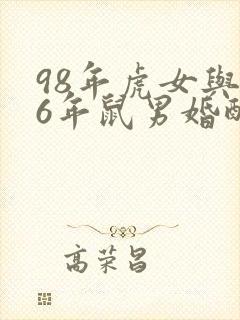 98年虎女與
6年鼠男婚
高荣昌